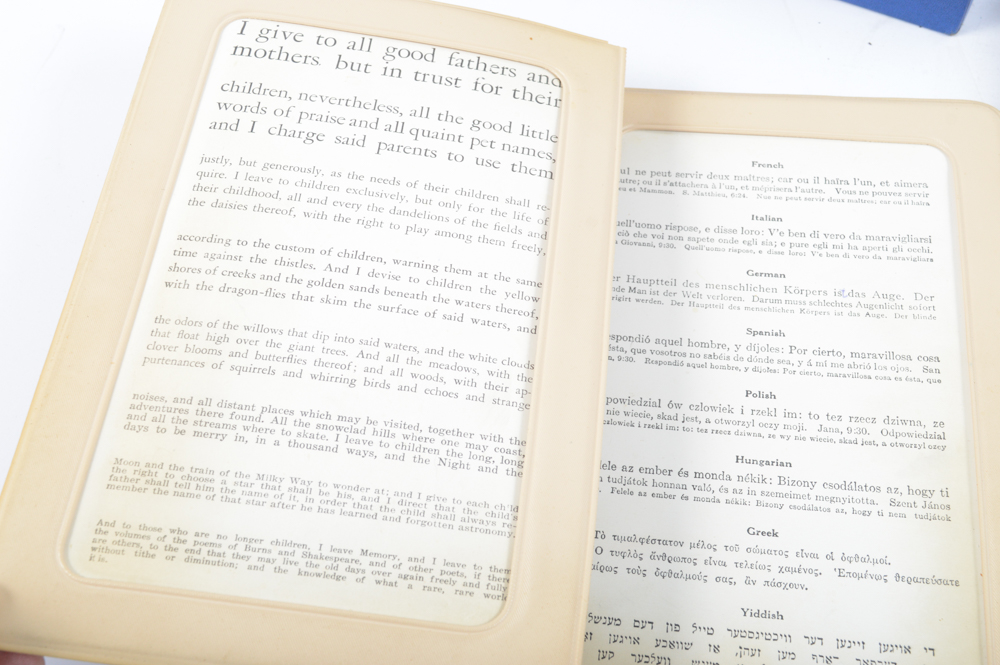 I give to all good fathers and
mothers but in trust for their
children, nevertheless, all the good little
words of praise and all quaint pet names,
and I charge said parents to use them
justly, but generously, as the needs of their children shall re-
quire. I leave to children exclusively, but only for the life of
their childhood, all and every the dandelions of the fields and
the daisies thereof, with the right to play among them freely,
according to the custom of children, warning them at the same
time against the thistles. And I devise to children the yellow
shores of creeks and the golden sands beneath the waters thereof,
with the dragon-flies that skim the surface of said waters, and
the odors of the willows that dip into said waters, and the white clouds
that float high over the giant trees. And all the meadows, with the
clover blooms and butterflies thereof; and all woods, with their ap-
purtenances of squirrels and whirring birds and echoes and strange
noises, and all distant places which may be visited, together with the
adventures there found. All the snowclad hills where one may coast,
and all the streams where to skate. I leave to children the long, long
days to be merry in, in a thousand ways, and the Night and the
Moon and the train of the Milky Way to wonder at; and I give to each child
the right to choose a star that shall be his, and I direct that the child's
father shall tell him the name of it, in order that the child shall always re-
member the name of that star after he has learned and forgotten astronomy.
And to those who are no longer children, I leave Memory, and I leave to them
the volumes of the poems of Burns and Shakespeare, and of other poets, if there
are others, to the end that they may live the old days over again freely and fully
without tithe or diminution; and the knowledge of what a rare, rare world
it is.
French
ul ne peut servir deux maîtres; car ou il haïra l'un, et aimera
utre; ou il s'attachera à l'un, et méprisera l'autre. Vous ne pouvez servir
et Mammon. S. Matthieu, 6:24. Nus ne peut servir deux maîtres; car ou il haïra
Italian
uell'uomo rispose, e disse loro: V'e ben di vero da maravigliarsi
ciò che voi non sapete onde egli sia; e pure egli mi ha aperti gli occhi.
Giovanni, 9:30. Quell'uomo rispose, e disse loro: V'e ben di vero da maravigliars
German
er Hauptteil des menschlichen Körpers ist das Auge. Der
nde Man ist der Welt verloren. Darum muss schlechtes Augenlicht sofort
rigirt werden. Der Hauptteil des menschlichen Körpers ist das Auge. Der blinde
Spanish
espondió aquel hombre, y díjoles: Por cierto, maravillosa cosa
ésta, que vosotros no sabéis de dónde sea, y á mí me abrió los ojos. San
n, 9:30. Respondió aquel hombre, y díjoles: Por cierto, maravillosa cosa es ésta, que
Polish
powiedzial ów czlowiek i rzekl im: to tez rzecz dziwna, ze
nie wiecie, skad jest, a otworzyl oczy moji. Jana, 9:30. Odpowiedzial
czlowiek i rzekl im: to tez rzecz dziwna, ze wy nie wiecie, skad jest, a otworzyl oczy
Hungarian
lele az ember és monda nékik: Bizony csodálatos az, hogy ti
tudjátok honnan való, és az in szemeimet megnyitotta. Szent János
Felele az ember és monda nékik: Bizony csodálatos az, hogy ti nem tudjátok
Greek
Τὸ τιμαλφέστατον μέλος τοῦ σώματος εἶναι οἱ ὀφθαλμοί.
Ὁ τυφλὸς ἄνθρωπος εἶναι τελείως χαμένος. Ἑπομένως θεραπεύσατε
αίρως τοὺς ὀφθαλμούς σας, ἂν πάσχουν.
Yiddish
די אויגען זיינען דער וויכטיגסטער טייל פון דעם מענשל
דארף מען זעהן, אז שוואכע אויגען זא
וועלכער קען